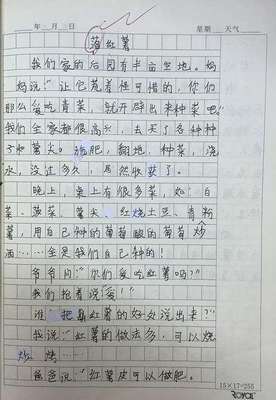 年 月 日 星期 天气
落红薯
我们家的后园有半亩空地。妈
妈说：“让它荒着怪可惜的，你们
那么爱吃青菜，就开辟出来种菜吧。”
我们全家都很高兴，去买了各种种
子和薯尖。施肥，翻地，种菜，浇
水，没过多久，居然收获了。
晚上，桌上有很多菜，如：白
菜、菠菜、薯尖、红烧土豆、青
薯，用自己种的葡萄酿的葡萄
酒……全是我们自己种的！
爷爷问：“你们爱吃红薯吗？”
我们抢着说：“爱！”
谁 把红薯的好处说出来？”
我说：“红薯的做法多，可以烧
炒 烤……
爸爸说：“红薯皮可以做肥。
15×17=255
ROYAL